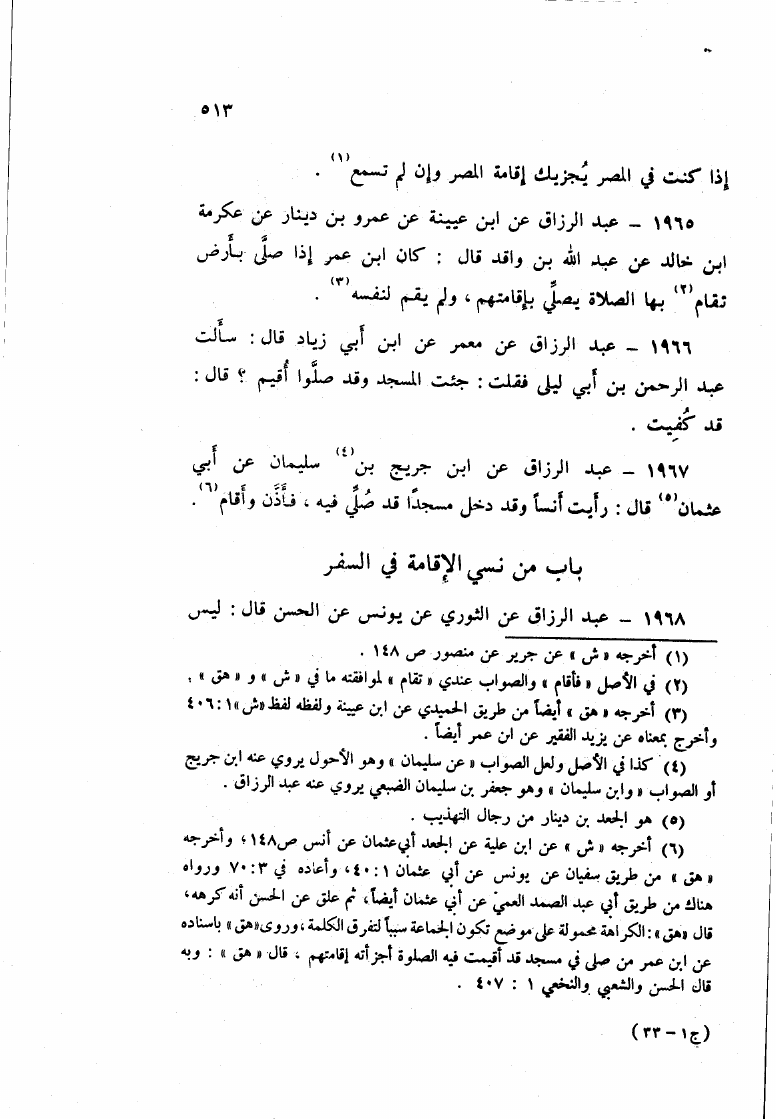 ٥١٣
إذا كنت في المصر يُجزيك إقامة المصر وإن لم تسمع (١) .
١٩٦٥ – عبد الرزاق عن ابن عيينة عن عمرو بن دينار عن عكرمة
ابن خالد عن عبد الله بن واقد قال : كان ابن عمر إذا صلَّى بأَرض
تقام (٢) بها الصلاة يصلِّي بإقامتهم ، ولم يقم لنفسه (٣) .
١٩٦٦ – عبد الرزاق عن معمر عن ابن أبي زياد قال : سأَلت
عبد الرحمن بن أَبي ليلى فقلت : جئت المسجد وقد صلَّوا أُقيم ؟ قال :
قد كُفِيت .
١٩٦٧ – عبد الرزاق عن ابن جريج بن (٤) سليمان عن أَبي
عثمان (٥) قال : رأَيت أَنساً وقد دخل مسجدًا قد صُلِّي فيه ، فأَذَّن وأَقام (٦) .
باب من نسي الإِقامة في السفر
١٩٦٨ – عبد الرزاق عن الثوري عن يونس عن الحسن قال : ليس
(١) أخرجه « ش » عن جرير عن منصور ص ١٤٨ .
(٢) في الأصل « فأقام » والصواب عندي « تقام » لموافقته ما في « ش » و « هق » .
(٣) أخرجه « هق » أيضاً من طريق الحميدي عن ابن عيينة ولفظه لفظ «ش» ١ : ٤٠٦
وأخرج بمعناه عن يزيد الفقير عن ابن عمر أيضاً .
(٤) كذا في الأصل ولعل الصواب « عن سليمان » وهو الأحول يروي عنه ابن جريج
أو الصواب « وابن سليمان » وهو جعفر بن سليمان الضبعي يروي عنه عبد الرزاق .
(٥) هو الجعد بن دينار من رجال التهذيب .
(٦) أخرجه « ش » عن ابن علية عن الجعد أبي عثمان عن أنس ص١٤٨ ؛ وأخرجه
« هق » من طريق سفيان عن يونس عن أبي عثمان ١ : ٤٠٧، وأعاده في ٣ : ٧٠ ورواه
هناك من طريق أبي عبد الصمد العمي عن أبي عثمان أيضاً، ثم علق عن الحسن أنه كرهه،
قال «هق» : الكراهة محمولة على موضع تكون الجماعة سبباً لتفرق الكلمة ، وروى «هق» باسناده
عن ابن عمر من صلى في مسجد قد أقيمت فيه الصلوة أجزأته إقامتهم ، قال « هق » : وبه
قال الحسن والشعبي والنخعي ١ : ٤٠٧ .
(ج١ – ٣٣)